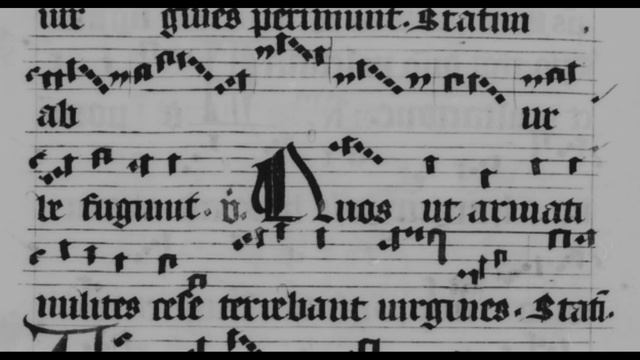 uir gines perimunt. Statim
ab ur
le fugiunt. v. Quos ut armati
milites cese terrebant uirgines. Statī.